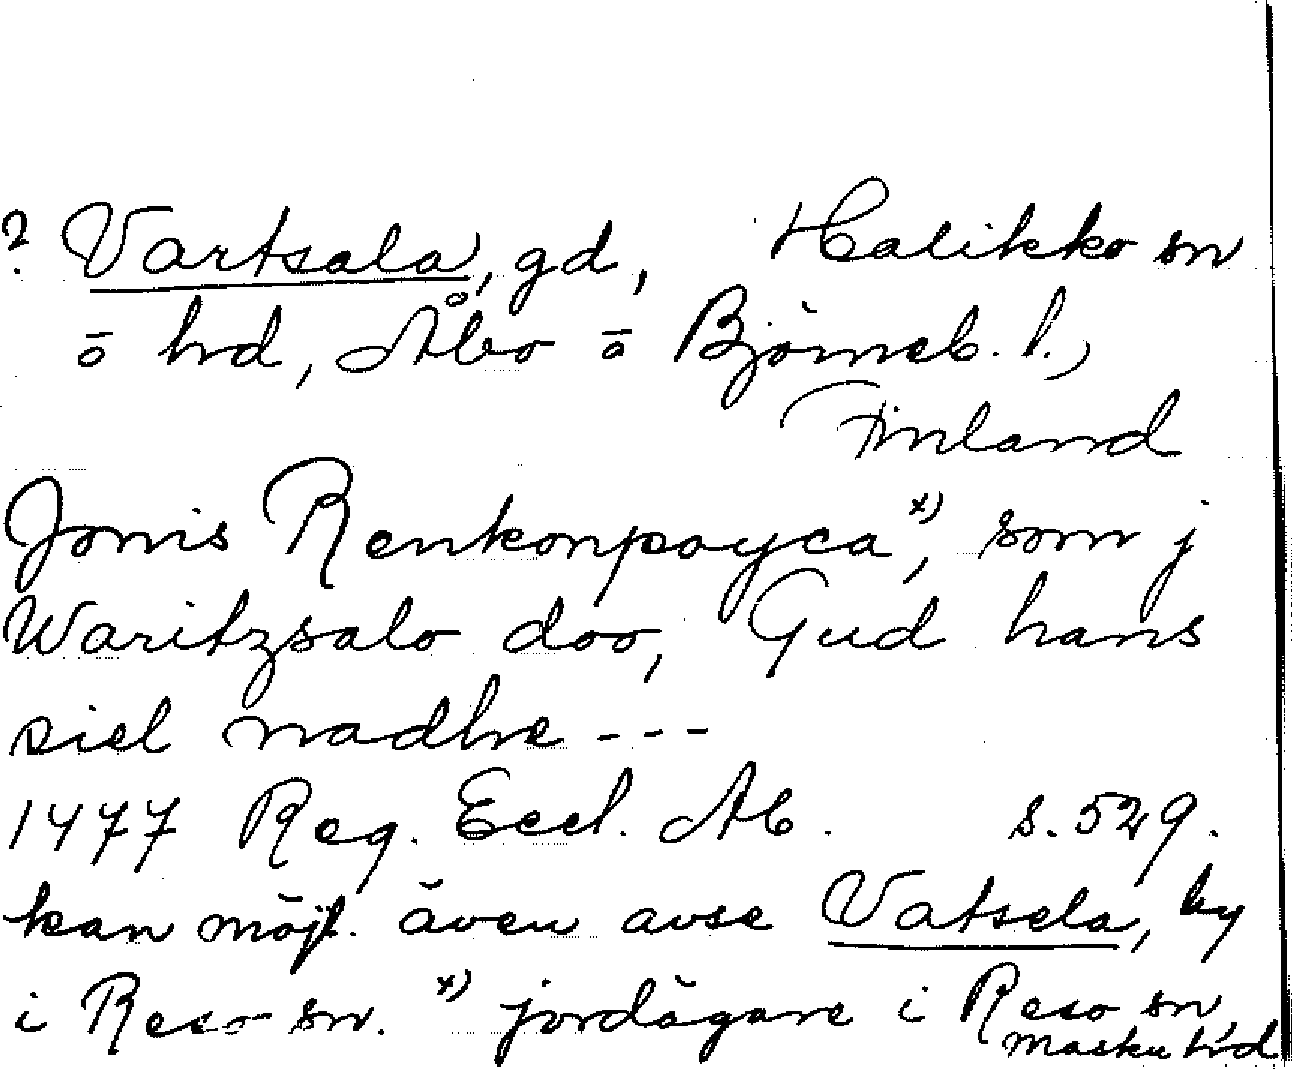 ? Vartsala, gd, Halikko sn
o hd, Åbo o Björneb. l.,
Finland
Jönis Renkonpoyca x), som j
Waritzsalo doo, Gud hans
siel nadhe ---
1477 Reg. Eccl. Ab. s. 529.
kan möjl. även avse Vatsela, by
i Reso sn. x) jordägare i Reso sn,
Masku hd